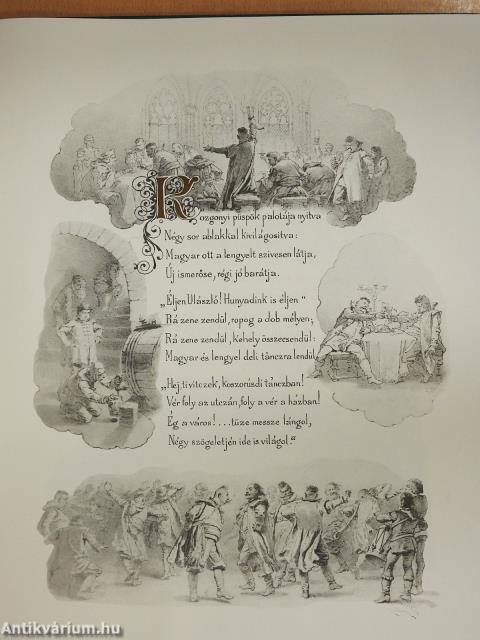 Rozgonyi püspök palotája nyitva
Négy sor ablakkal kivilágosítva:
Magyar ott a lengyelt szívesen látja,
Új ismerőse, régi jó barátja.
„Éljen Ulászló! Hunyadink is éljen"
Rá zene zendül, ropog a dob mélyen;
Rá zene zendül, kehely összecsendül:
Magyar és lengyel deli tánczra lendül.
„Hej ti vitézek, koszorúsdi tánczban!
Vér foly az utczán, foly a vér a házban!
Ég a város!...tüze messze lángol,
Négy szögeletjén ide is világol."
Antikvárium.hu